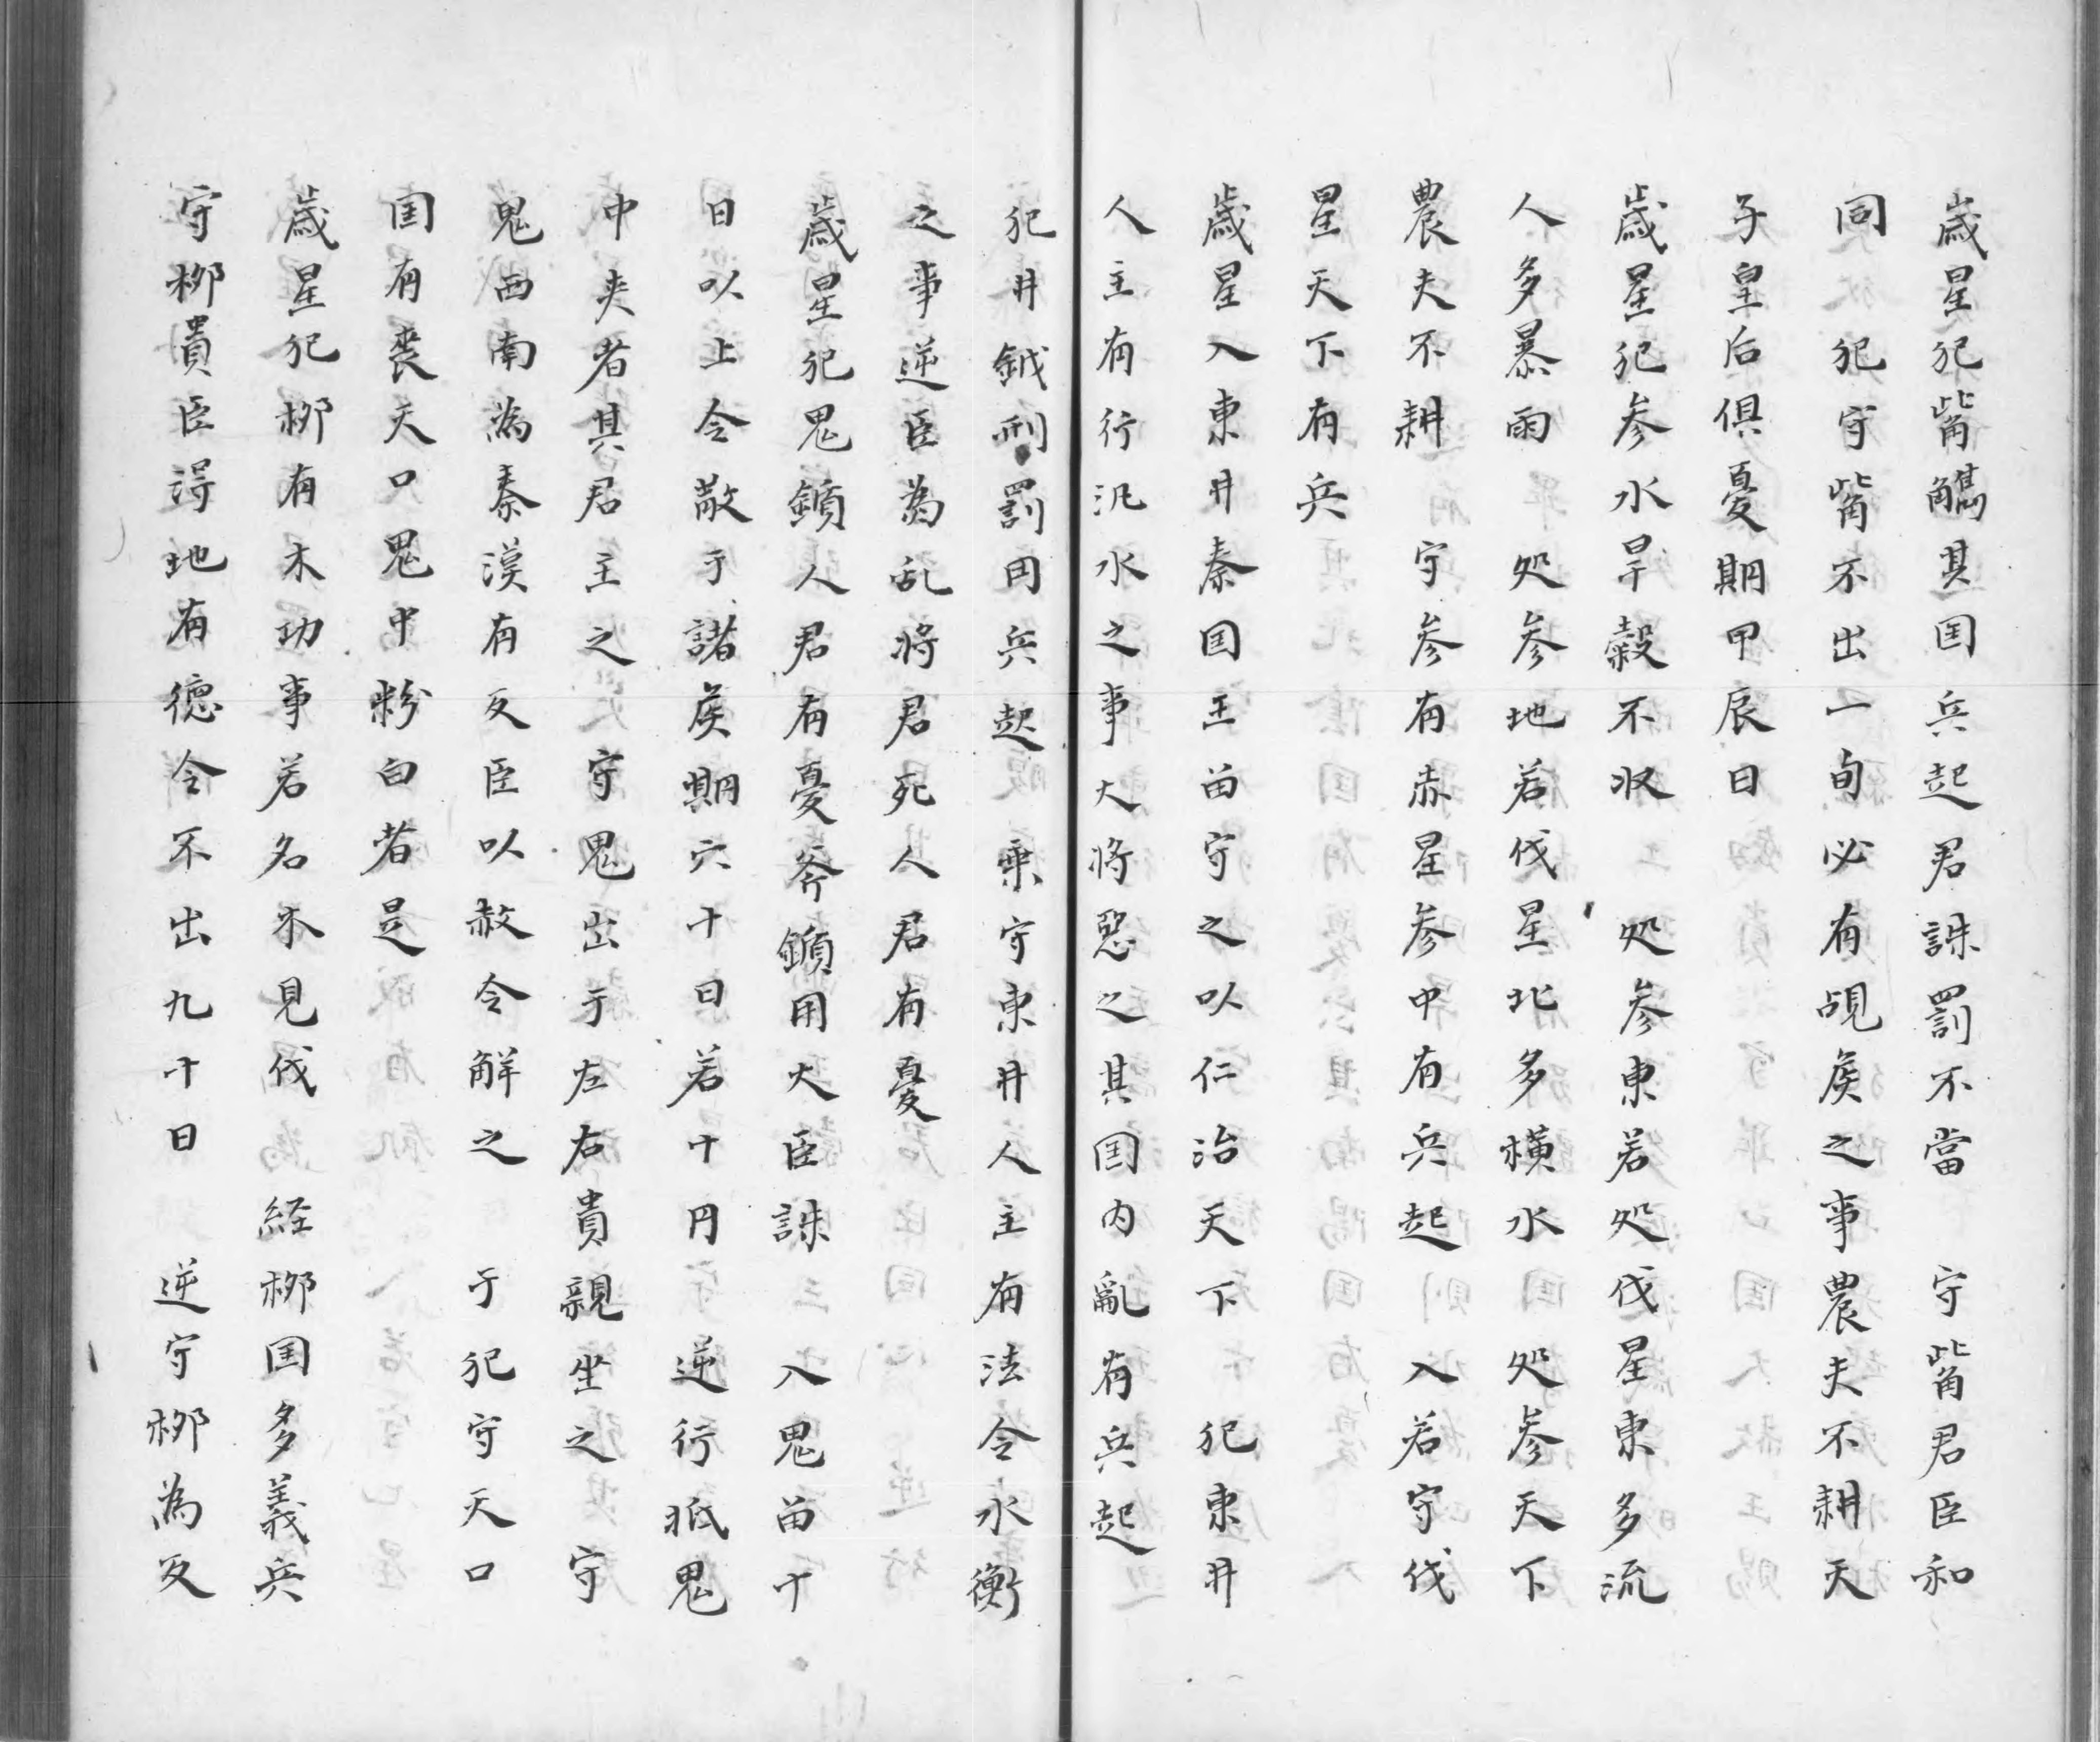 歳星犯觜觿其国兵起君誅罰不當　守觜君臣和
同　犯守觜不出一旬必有覘侯之事農夫不耕天
子皇后俱憂期甲辰日
歳星犯参水旱穀不収　処参東若処伐星東多流
人多暴雨　処参地若伐星北多横水　処参天下
農夫不耕　守参有赤星参中有兵起　入若守伐
星天下有兵
歳星入東井秦国王畄守之以仁治天下　犯東井
人主有行汎水之事大将惡之其国内亂有兵起
犯井鉞刑罰用兵起　乗守東井人主有法令水衡
之事逆臣為乱将君死人君有憂
歳星犯鬼鑕人君有憂斧鑕用大臣誅　入鬼畄十
日以上令散于諸侯期六十日若十円　逆行抵鬼
中夹者其君主之　守鬼出于左右貴親坐之　守
鬼西南為秦漢有反臣以赦令解之　于犯守天口
国有喪天口鬼中粉白者是
歳星犯栁有木功事若名木見伐　経栁国多義兵
守栁貴臣得地有德令不出九十日　逆守栁為反